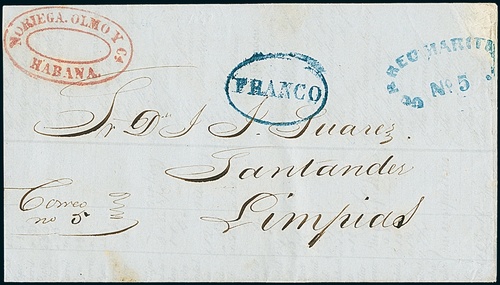 NORIEGA. OLMO Y Ca
HABANA.
FRANCO
CORREO MARITO
No. 5
Sr. Dn. J. J. Suarez.
Santander
Limpias
Correo
no 5